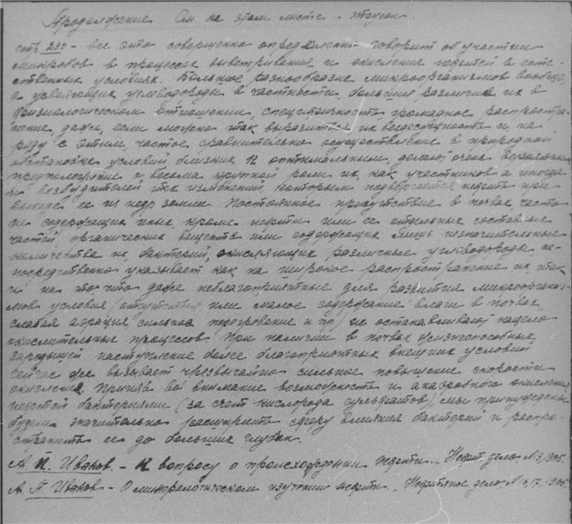 Продолжение См на этом месте
стр 232 - все это совершенно определенно говорит об участии
микробов в процессе выветривания и окисления нефтей в есте-
ственных условиях. разнообразие микроорганизмов вообще,
а усвояющих углеводороды в частности, большие различия их в
физиологическом отношении, громадное распростра-
нение, даже, если можно так выразиться их вездесущность и на
ряду с этим, частое сравнительно осуществление в природной
обстановке условий, близких к оптимальным, делают очень вероятным
предположение о весьма крупной роли их, как участников а иногда
и возбудителей тех изменений, которым подвергается нефть при
выходе ее из недр земли. Постоянное присутствие в почвах часто
не содержащих иных, кроме нефти или ее отдельных составных
частей органических веществ или содержащих лишь незначительные
количества их бактерий, окисляющих различные углеводороды не-
посредственно указывает как на широкое распространение их так
и на то что даже неблагоприятные для развития микроорганиз-
мов условия (отсутствие или малое содержание влаги в почвах,
слабая аэрация сильное прогревание и пр) не останавливают нацело
окислительных процессов. При наличии в почвах жизнеспособных
зародышей наступление более благоприятных внешних условий
сейчас же вызывает чрезвычайно сильное повышение скорости
окисления. Приняв во внимание возможность и анаэробного окисления
нефтей бактериями (за счет кислорода сульфатов) мы принуждены
будем значительно расширить сферу влияния бактерий и распро-
странить ее до больших глубин.
А. Иванов. - К вопросу о происхождении нефти.. Нефт дело N 3,
А. П. Иванов - О минералогическом изучении нефти. Нефтяное дело N